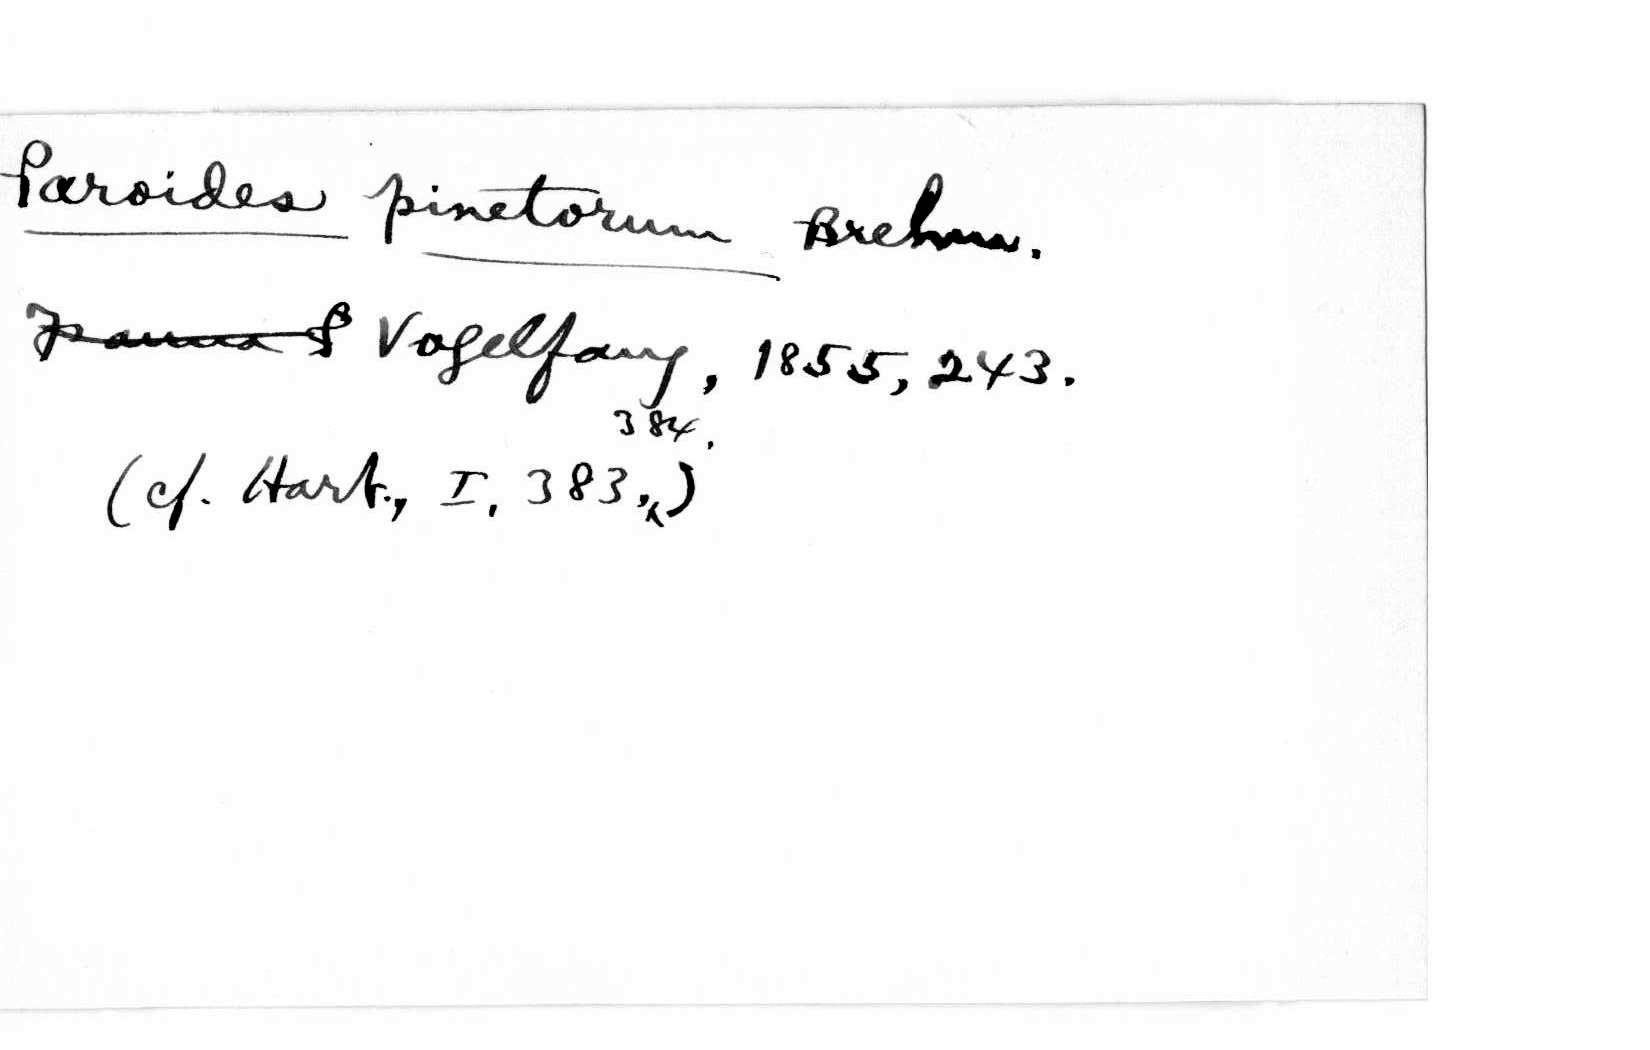 Paroides pinetorum Brehm.
Vogelfang, 1855, 243.
(cf. Hart., I, 383, 384.)